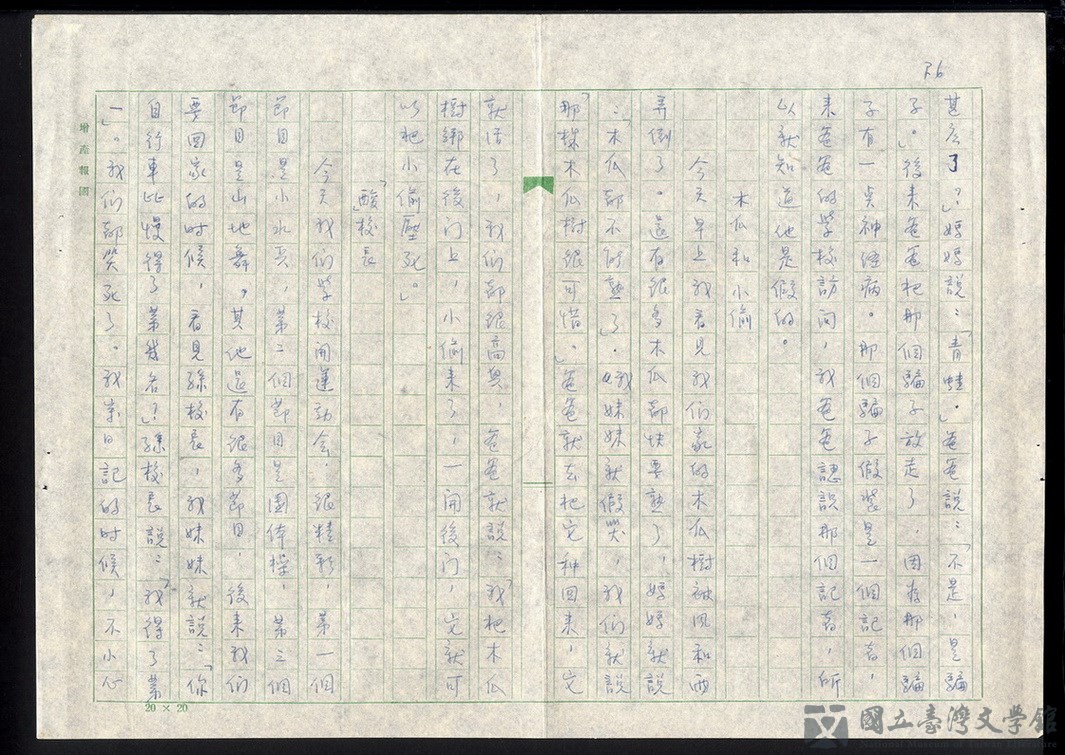 甚么了？」媽媽說：「青蛙。」爸爸說：「不是，是騙
子」。後來爸爸把那個騙子放走了，因為那個騙
子有一点神經病。那個騙子假裝是一個記者，
來爸爸的學校訪问，我爸爸認識那個記者，所
以就知道他是假的。
木瓜和小偷
今天早上我看見我们家的木瓜樹被风和雨
弄倒了。還有很多木瓜都快要熟了，媽媽就說
：「木瓜都不能熟了」。我妹妹就假哭，我们就說
「那棵木瓜樹很可惜。」爸爸就去把它种回来，它
就活了，我们都很高興，爸爸就說：「我把木瓜
樹绑在後门上，小偷来了，一開後门，它就可
以把小偷壓死。」
「酸」校長
今天我们學校開運動会，很精彩，第一個
節目是小水兵，第二個節目是團体操，第三個
節目是山地舞，其他還有很多節目，後来我们
要回家的时候，看見孫校長，我妹妹就說：「你
自行車比慢得了第幾名？」孫校長說：「我得了第
一」。我们都笑死了。我寫日記的时候，不小心
R6
增產報國
20 × 20
國立臺灣文學館